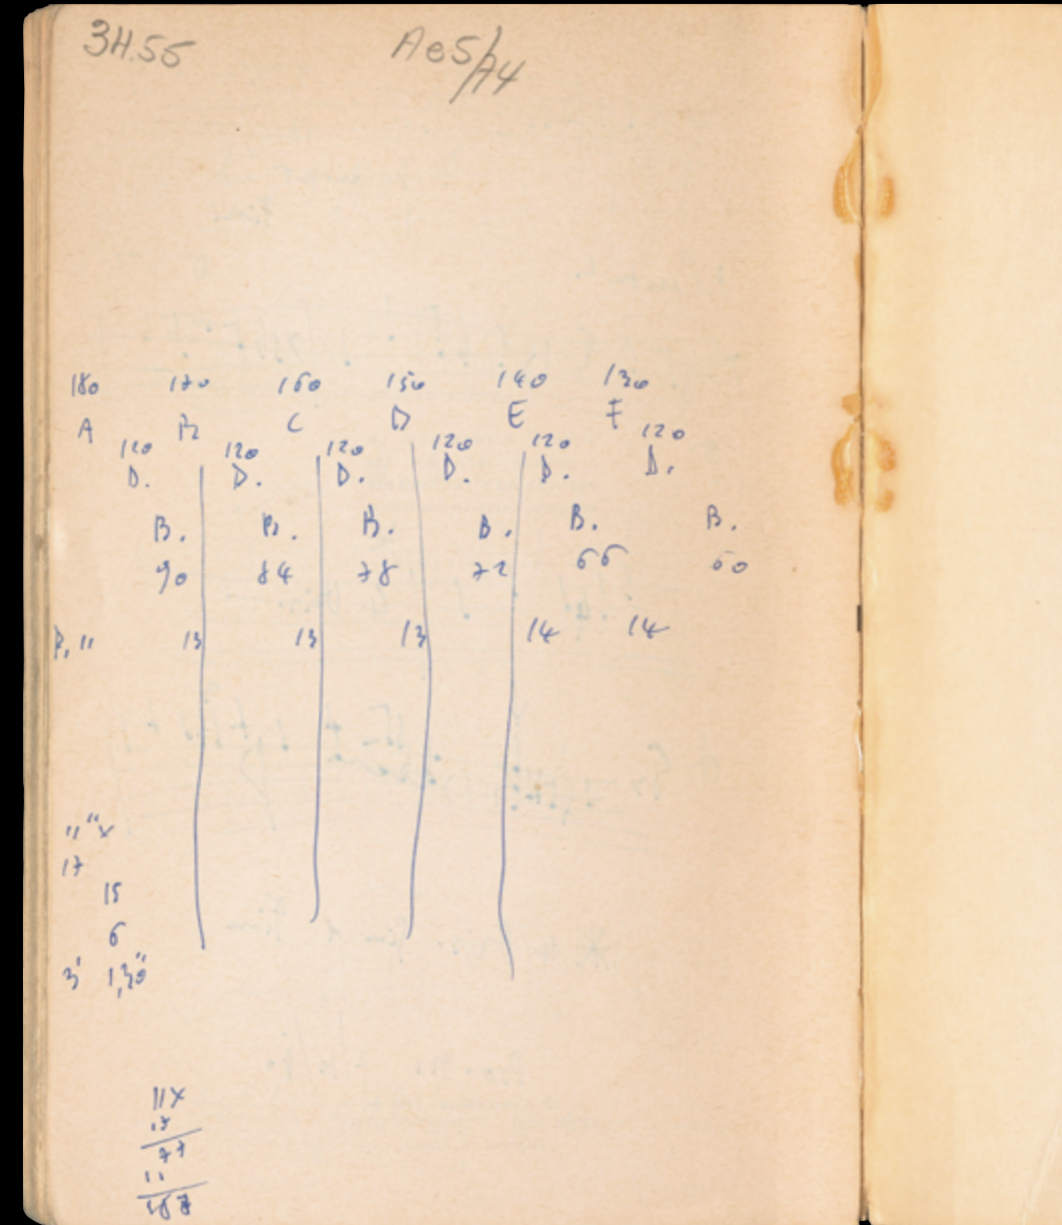 3H.55 Ae5/A4
180 170 160 150 140 130
A B C D E F
120 120 120 120 120 120
D. D. D. D. D. D.
B. B. B. B. B. B.
90 84 78 72 66 60
13 13 13 14 14
11" x
17
15
6
3' 1,30"
11 x
17
77
11
187